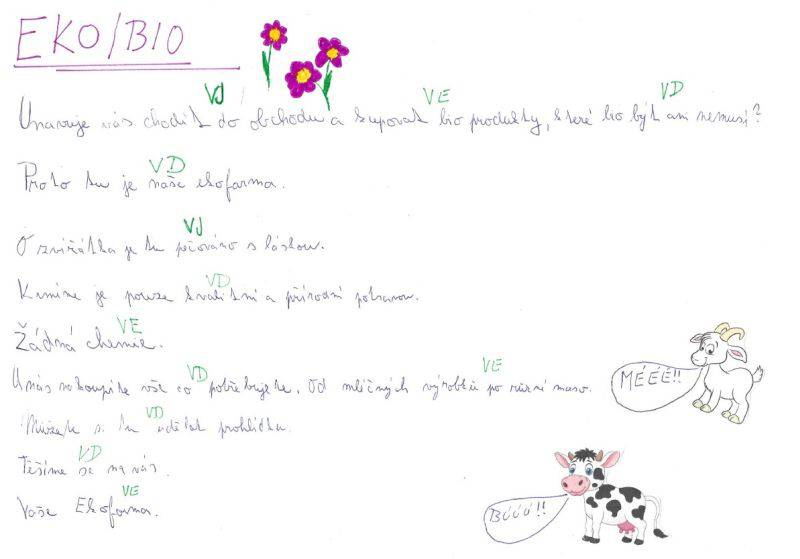 EKO/BIO
VJ VE VD
Unavuje vás chodit do obchodu a kupovat bio produkty, které bio být ani nemusí?
VD
Proto tu je naše ekofarma.
VJ
O zvířátka je tu pečováno s láskou.
VD
Krmíme je pouze kvalitní a přírodní potravou.
VE
Žádná chemie.
VD VE
U nás nakoupíte vše co potřebujete. Od mléčných výrobků po různí maso.
MÉÉÉ!!
VD
Můžete si tu udělat prohlídku.
VD
Těšíme se na vás.
VE
Vaše Ekofarma.
BÚÚÚ!!